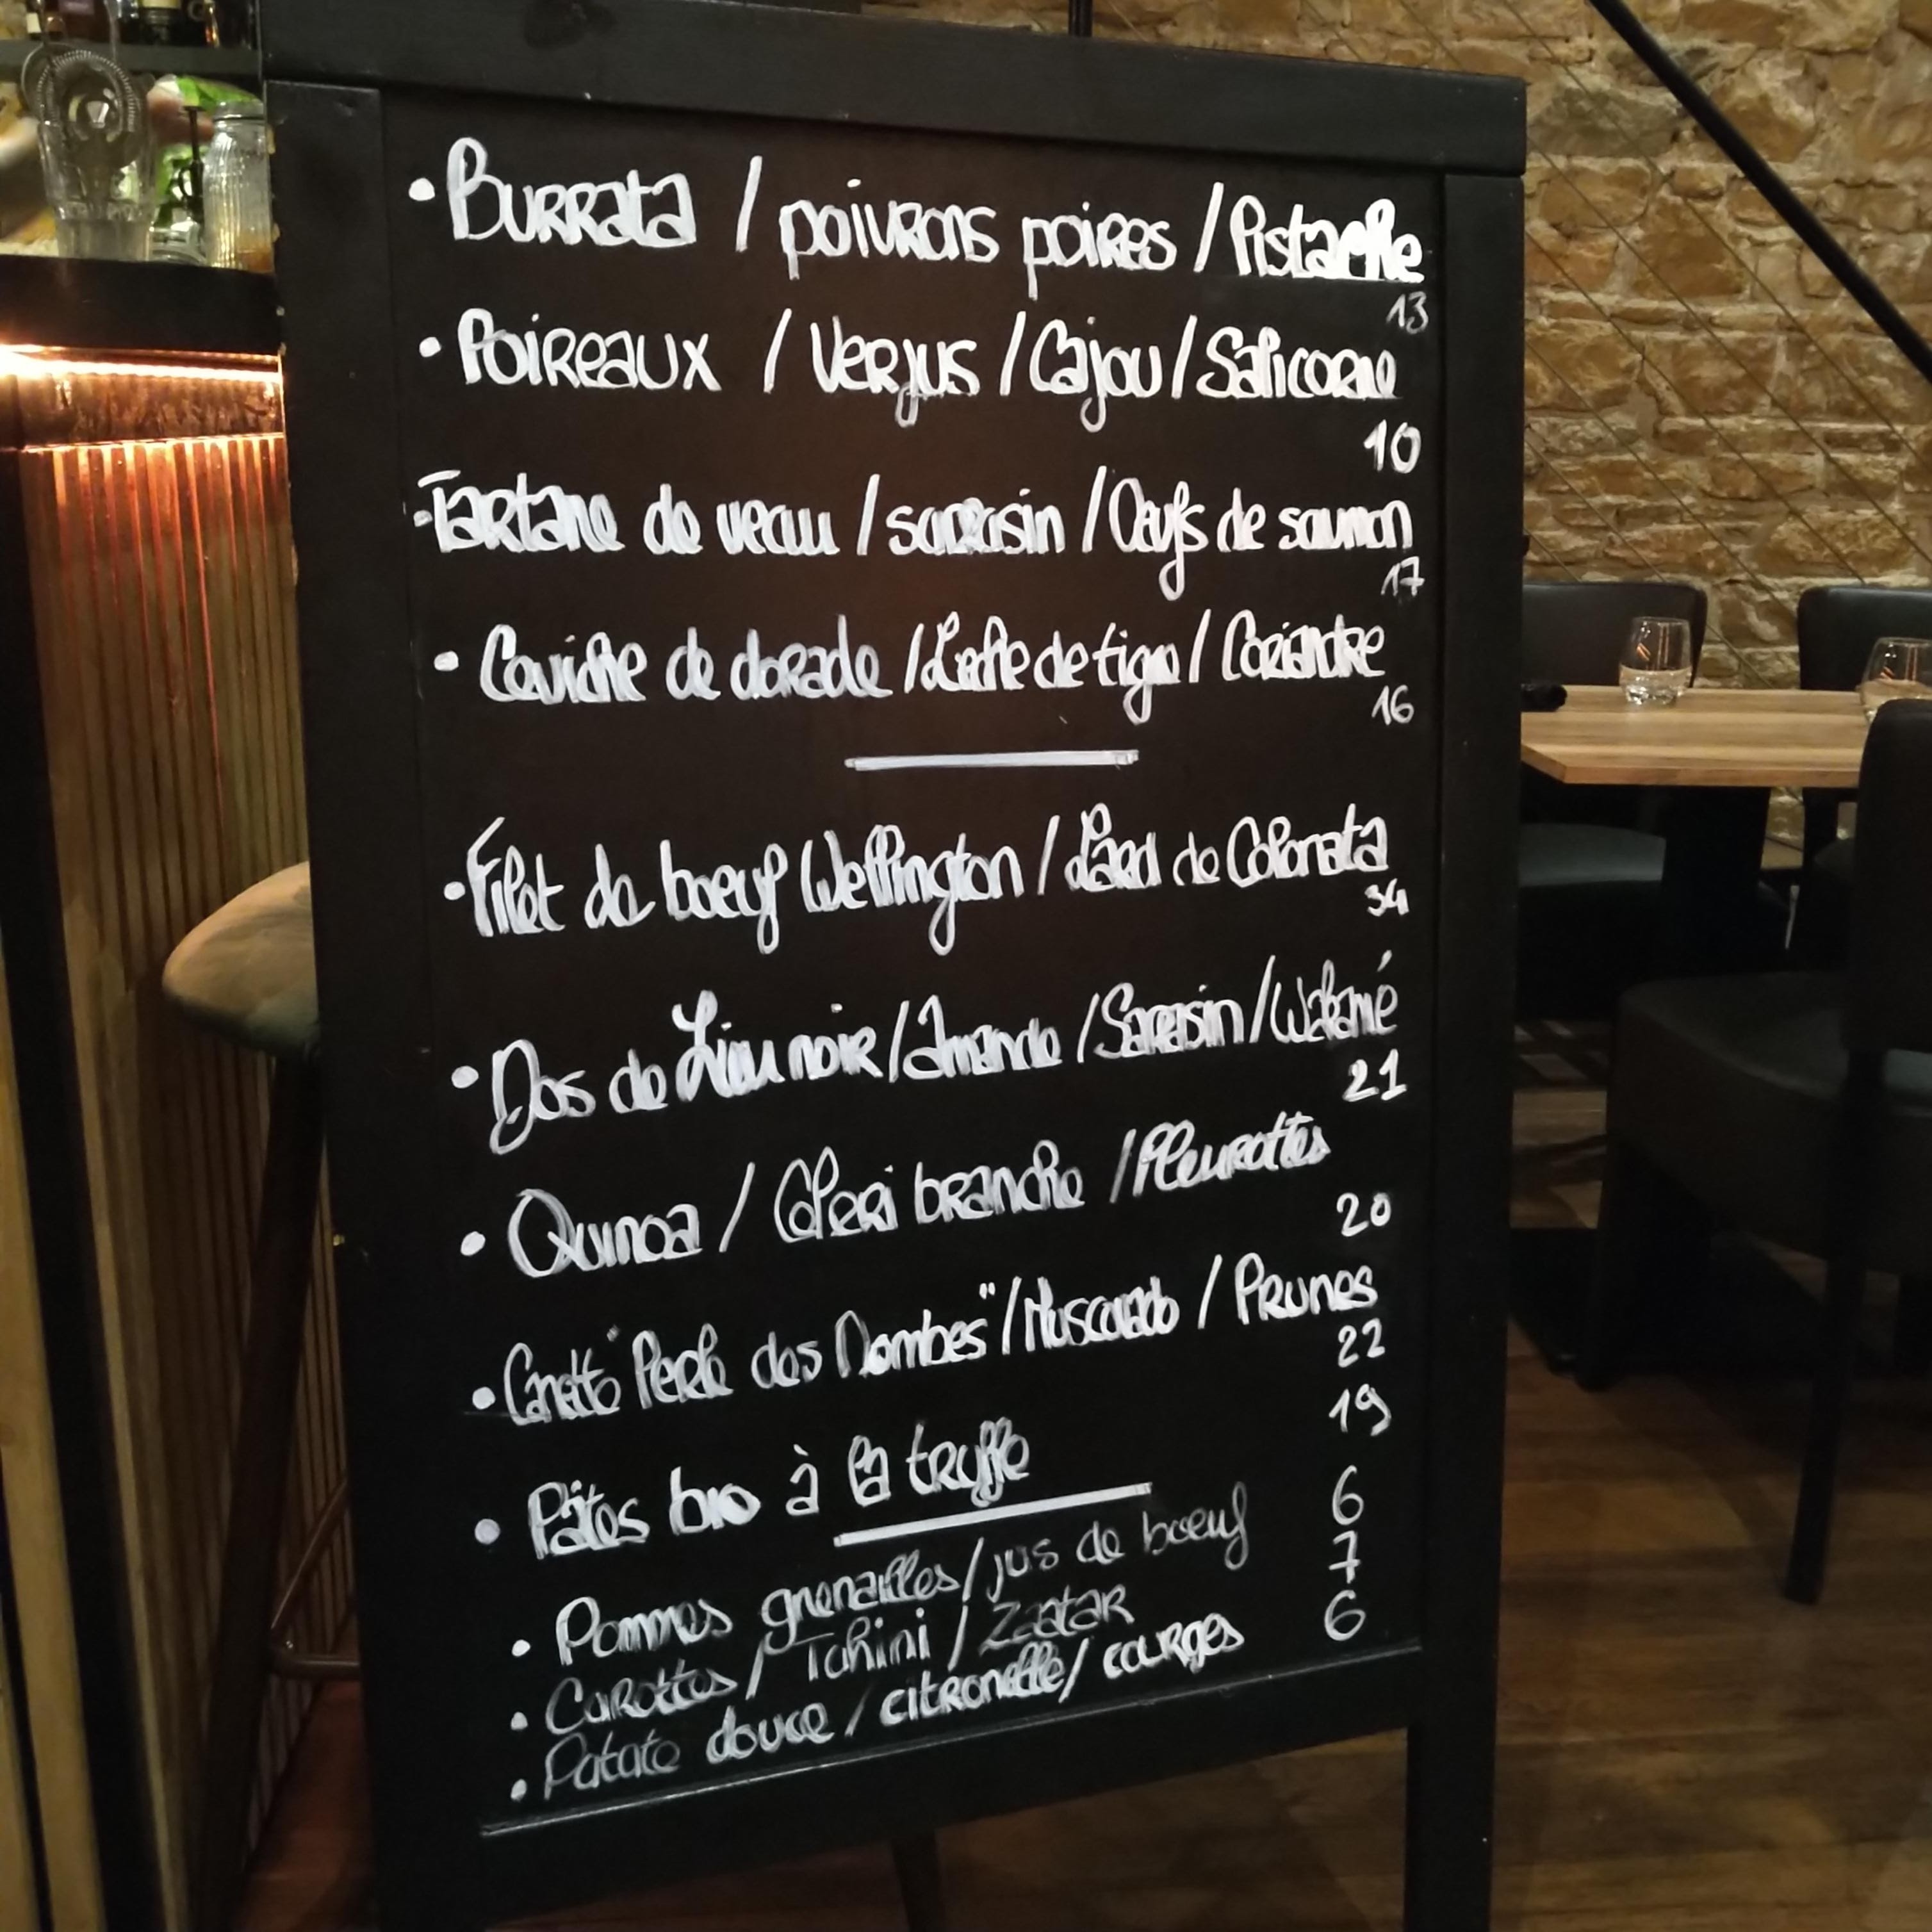 • Burrata / poivrons poires / Pistache
13
• Poireaux / Verjus / Cajou / Salicorne
10
• Tartare de veau / sarrasin / Oeufs de saumon
17
• Ceviche de dorade / Leche de tigre / Coriandre
16
• Filet de boeuf Wellington / Lard de Colonata
34
• Dos de Lieu noir / Amande / Sarrasin / Wakamé
21
• Quinoa / Céleri branche / Pleurottes
20
• Canette "Perle des Dombes" / Muscovado / Prunes
22
• Pâtes bio à la truffe 19
• Pommes grenailles / jus de boeuf 6
• Carottes / Tahini / Zaatar 7
• Patate douce / citronelle / courges 6